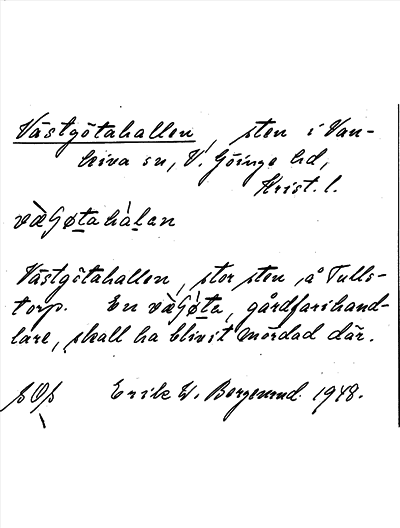 Västgötahallen, sten i Van-
keiva sn, V. Göinge hd,
Krist. l.
væ̀Gøtahálan
Västgötahallen, stor sten å Tulls-
torp. En væ̀Gǿta, gårdfarihand-
lare, skall ha blivit mördad där.
Erik W. Bergerud. 1948.